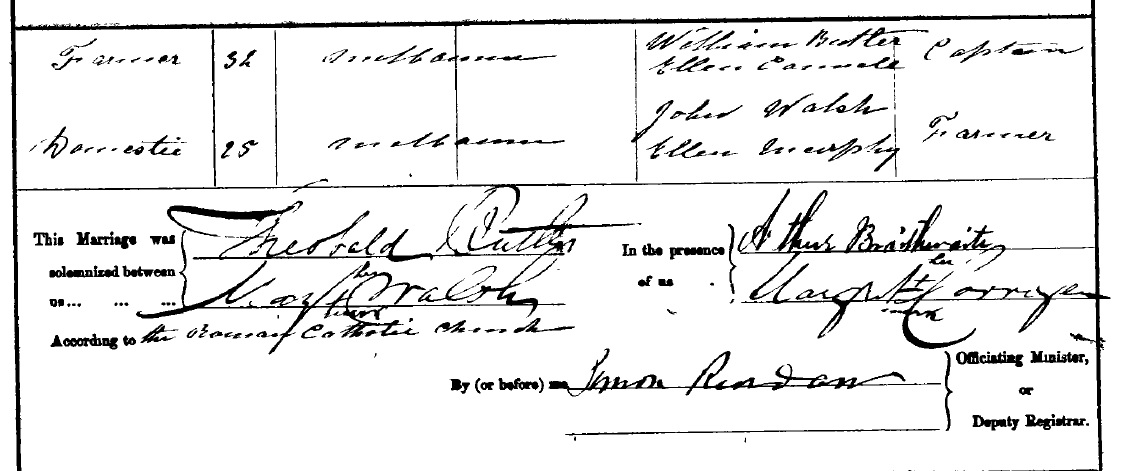 Farmer 32 Melbourne William Butler Captain
Ellen
John Walsh
Domestic 25 Melbourne Ellen Murphy Farmer
This Marriage was Theobald Butler In the presence Arthur Braithwaite
solemnized between her her
us... ... ... Mary X Walsh of us Margret X Corrigan
mark mark
According to the Roman Catholic Church
By (or before) me Simon Riordan Officiating Minister,
or
Deputy Registrar.